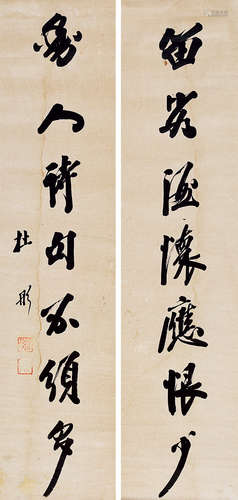 留客酒懷應恨少
動人詩句不須多
杜彤